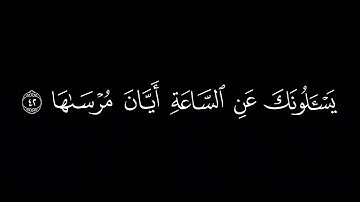 يَسْـَٔلُونَكَ عَنِ ٱلسَّاعَةِ أَيَّانَ مُرْسَىٰهَا ٤٢